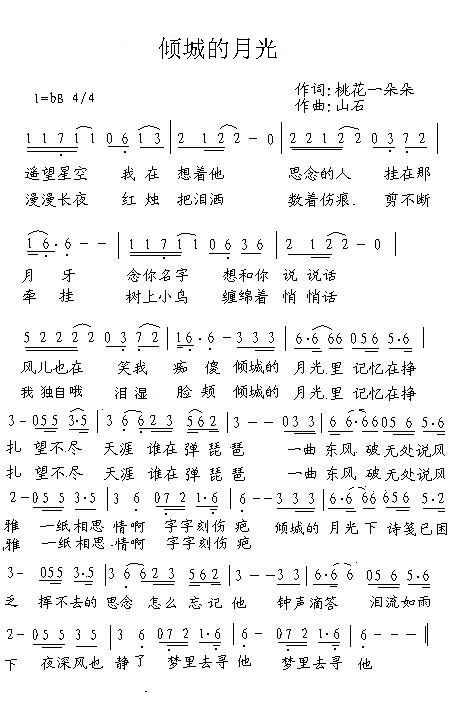 倾城的月光
作词:桃花一朵朵
1=bB 4/4
作曲:山石
1 1 7 1 1 0 6 1 3 | 2 1 2 2 - 0 | 2 2 1 2 2 0 3 7 2 |
遥望星空 我在 想着他 思念的人 挂在那
漫漫长夜 红烛 把泪洒 数着伤痕. 剪不断
1 6 · 6 - - | 1 1 7 1 1 0 6 3 6 | 2 1 2 2 - 0 |
月牙 念你名字 想和你 说说话
牵挂 树上小鸟 缠绵着 悄悄话
5 2 2 2 2 0 3 7 2 | 1 6 · 6 - 3 3 3 | 6 · 6 6 6 0 5 6 5 · 6 |
风儿也在 笑我 痴傻 倾城的 月光.里 记忆在挣
我独自哦 泪湿 脸颊 倾城的 月光.里 记忆在挣
3 - 0 5 5 3 · 5 | 3 6 6 2 3 5 6 2 | 3 - - 0 3 3 | 6 · 6 6 6 0 5 6 5 · 6 |
扎 望不尽 天涯 谁在弹琵琶 一曲 东风.破无处说风
扎 望不尽 天涯 谁在弹琵琶 一曲 东风.破无处说风
2 - 0 5 5 3 · 5 | 3 6 0 7 2 1 · 6 | 6 - - 3 3 3 | 6 · 6 6 6 0 5 6 5 · 2 |
雅 一纸相思 情啊 字字刻伤疤 倾城的 月光下 诗笺已困
雅 一纸相思.情啊 字字刻伤疤
3 - 0 5 5 3 · 5 | 3 6 6 2 3 5 6 2 | 3 - - 3 3 3 | 6 · 6 6 · 0 5 6 5 · 6 |
乏 挥不去的 思念 怎么忘记他 钟声滴答 泪流如雨
2 - 0 5 5 3 · 5 | 3 6 0 7 2 1 · 6 | 6 - - 0 7 2 1 · 6 | 6 - - - ‖
下 夜深风也 静了 梦里去寻他 梦里去寻 他